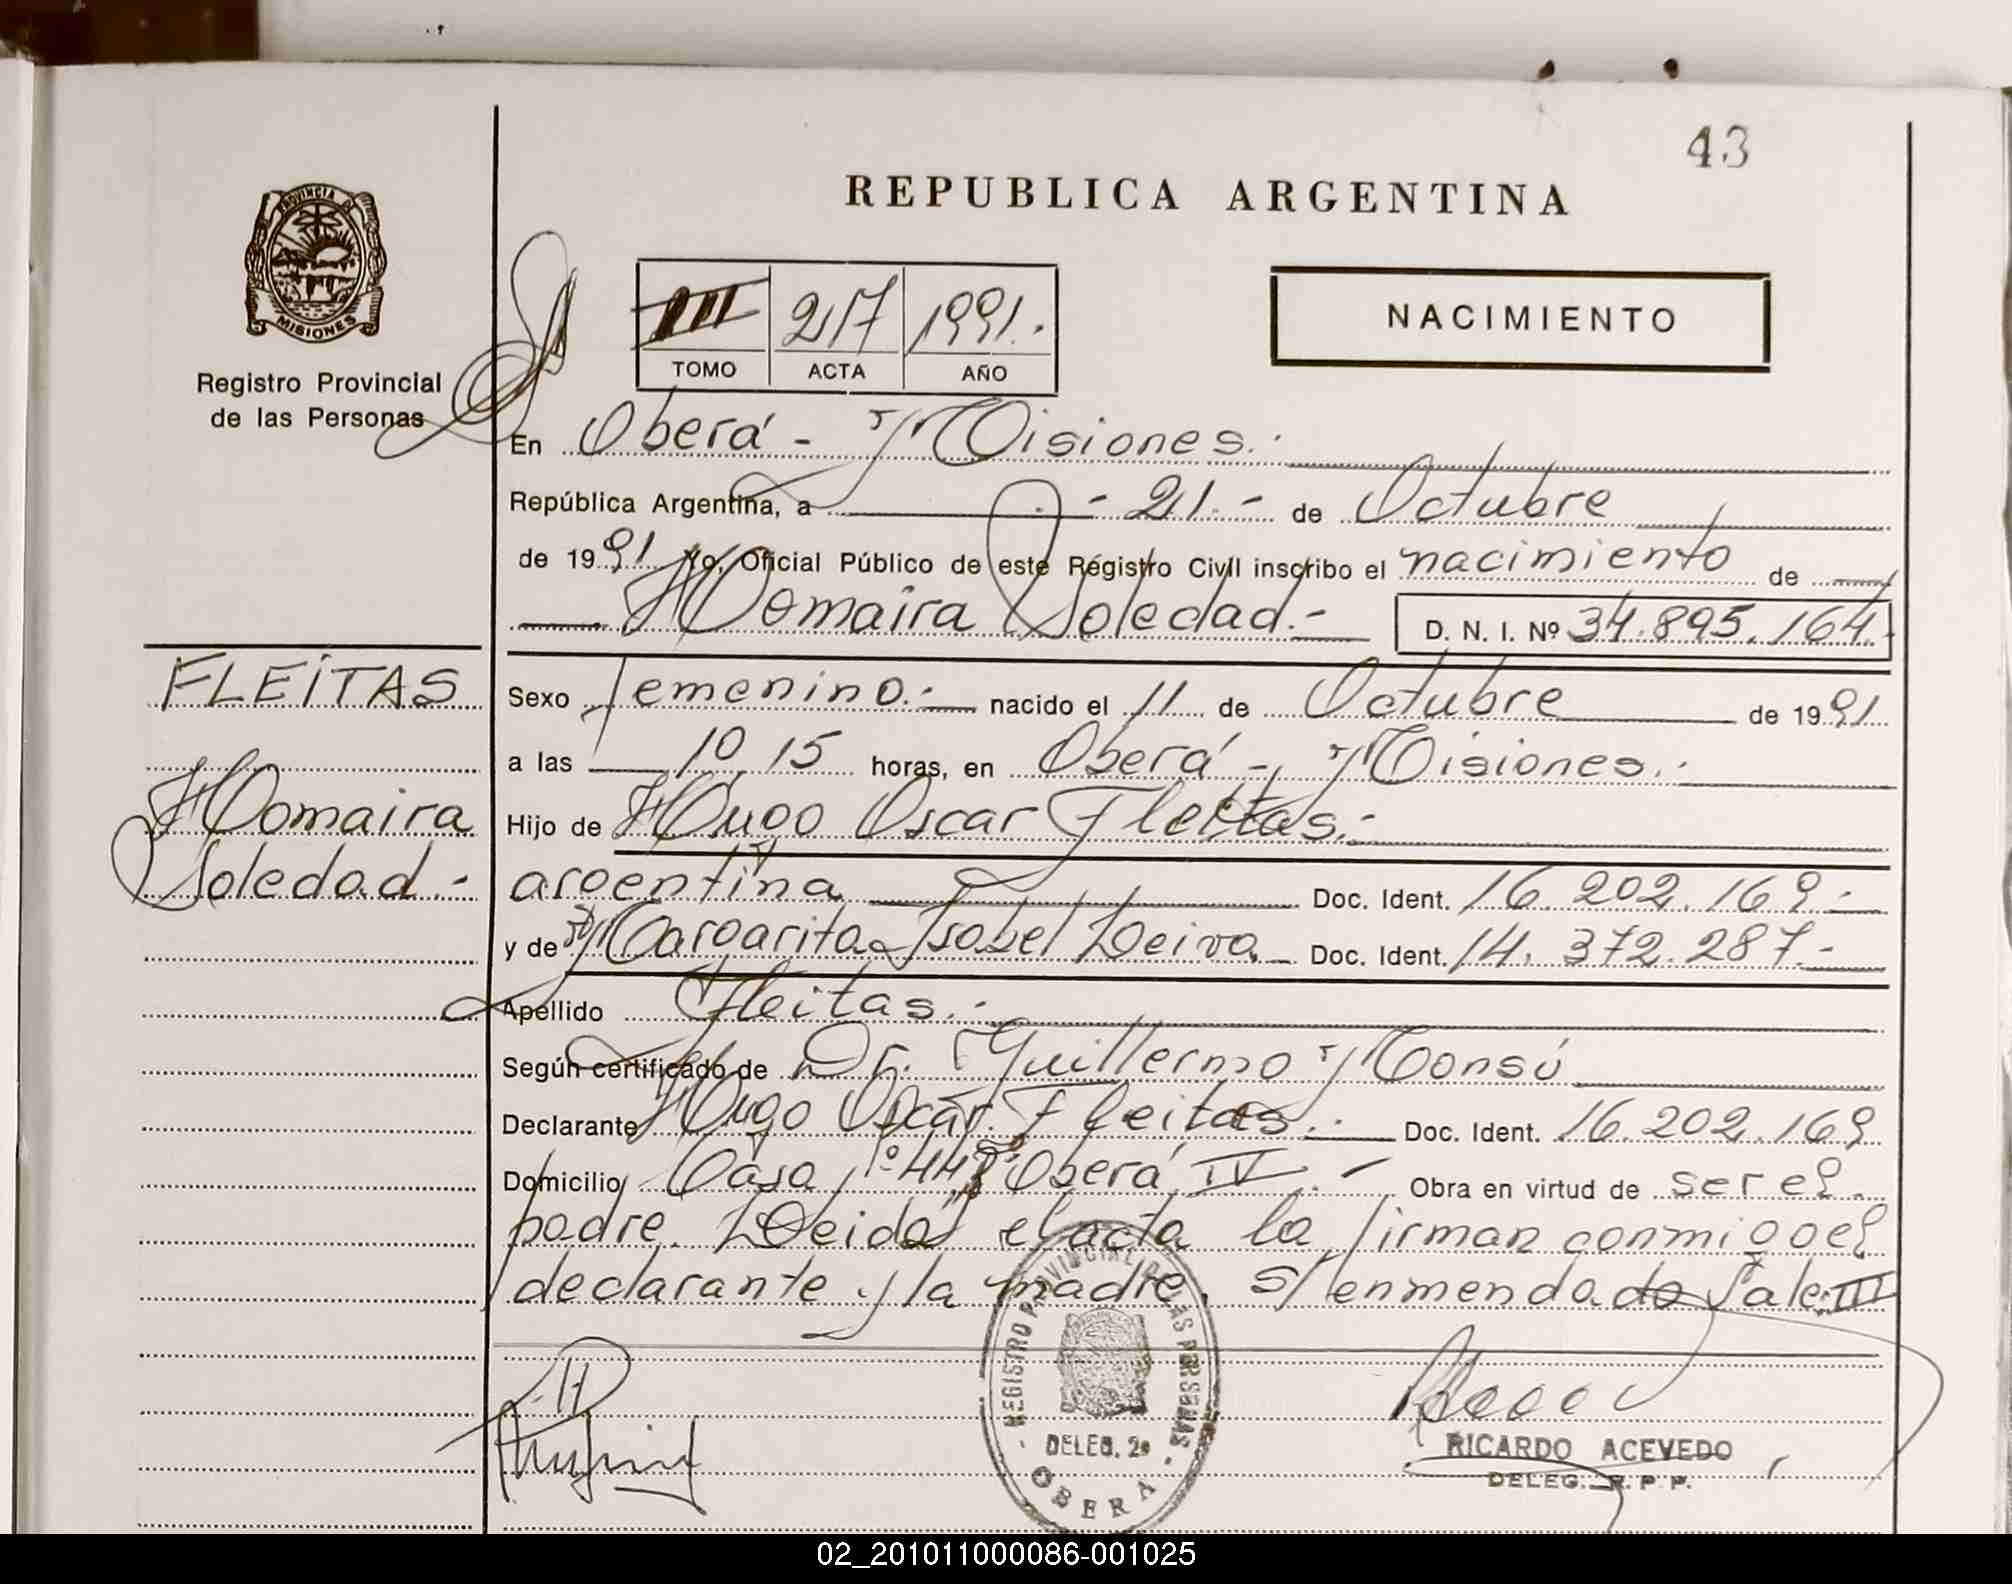 43
REPUBLICA ARGENTINA
PROVINCIA DE
MISIONES
Registro Provincial
de las Personas
III 217 1991.
TOMO ACTA AÑO
NACIMIENTO
En Oberá - Misiones.-
República Argentina, a - 21.- de Octubre
de 1991 Yo, Oficial Público de este Registro Civil inscribo el nacimiento de
Homaira Soledad.- D. N. I. Nº 34.895.164.
FLEITAS
Sexo femenino.- nacido el 11 de Octubre de 1991
a las 10 15 horas, en Oberá - Misiones.-
Homaira
Soledad.-
Hijo de Hugo Oscar Fleitas.-
argentina Doc. Ident. 16.202.169.-
y de Margarita Isabel Leiva Doc. Ident. 14.372.287.-
Apellido Fleitas.-
Según certificado de Dr. Guillermo Monsú
Declarante Hugo Oscar Fleitas.- Doc. Ident. 16.202.169
Domicilio Casa Nº 448 Oberá IV.- Obra en virtud de ser el
padre. Leída el acta la firman conmigo el
declarante y la madre. S/ enmendado Vale. III
REGISTRO PROVINCIAL DE LAS PERSONAS
DELEG. 2a
OBERA
RICARDO ACEVEDO
DELEG. R. P. P.
02_201011000086-001025